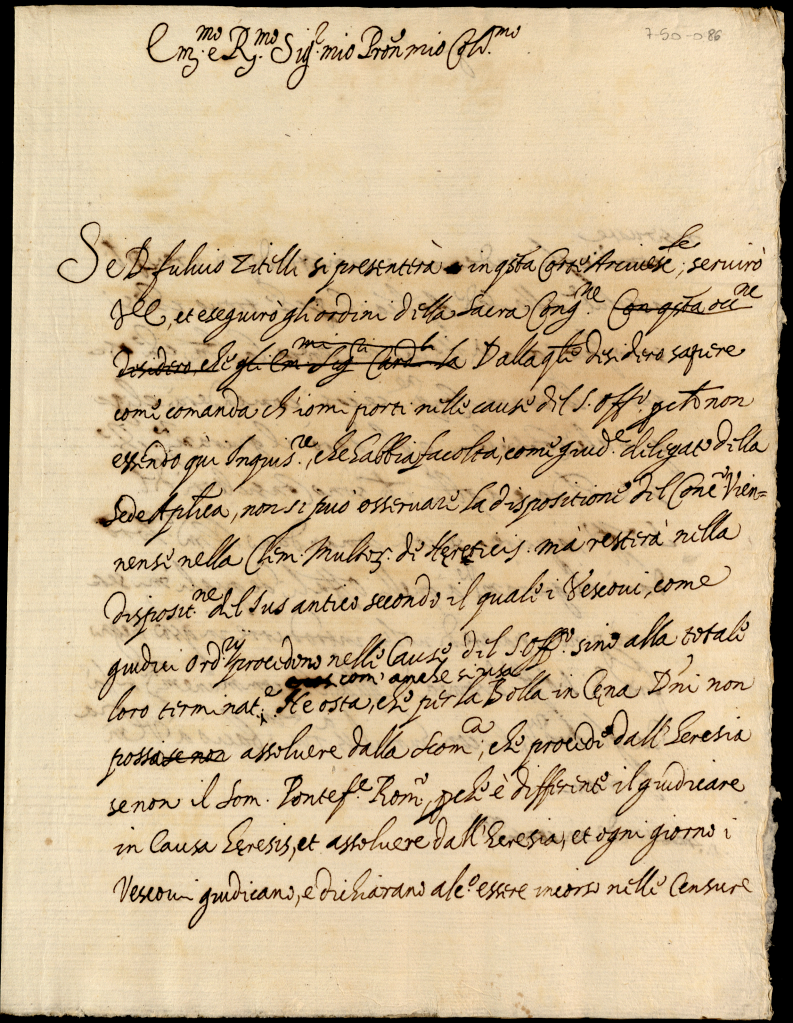 7-50-0 86
Em.mo e R.mo Sig.r mio Pron mio Col.mo
Se D. fulvio Zitelli si presenterà in q.sta Corte Arcives.le, servirò
V.E., et eseguirò gli ordini della Sacra Cong.ne Con q.sta occ.ne
desidero, che gli Em.mi Sig.ri Card.li la Dalla q.le desidero sapere
come comanda ch'io mi porti nelle cause del S. Off.o p che non
essendo qùi Inquis.re, che habbia facoltà, come giud.e delegato della
Sede Ap.lica, non si può osservare la dispositione del Conc.o Vien=
nense nella Clem. Multor. de Hereticis. mà resterà nella
disposit.ne del Jus antico secondo il quale i Vescovi, come
giudici Ord.rij procedono nelle Cause del S. Off.o sino alla totale
com' anche si usa
loro terminat.e. Ne osta, che per la Bolla in Cena D'ni non
possa se non assolvere dalla Scom.ca, che procede dall'heresia
se non il Som. Pontef.e Rom.o, p che è differente il giudicare
in Causa heresis, et assolvere dall'heresia, et ogni giorno i
Vescovi giudicano, e dichiarano alc.o essere incorso nelle Censure